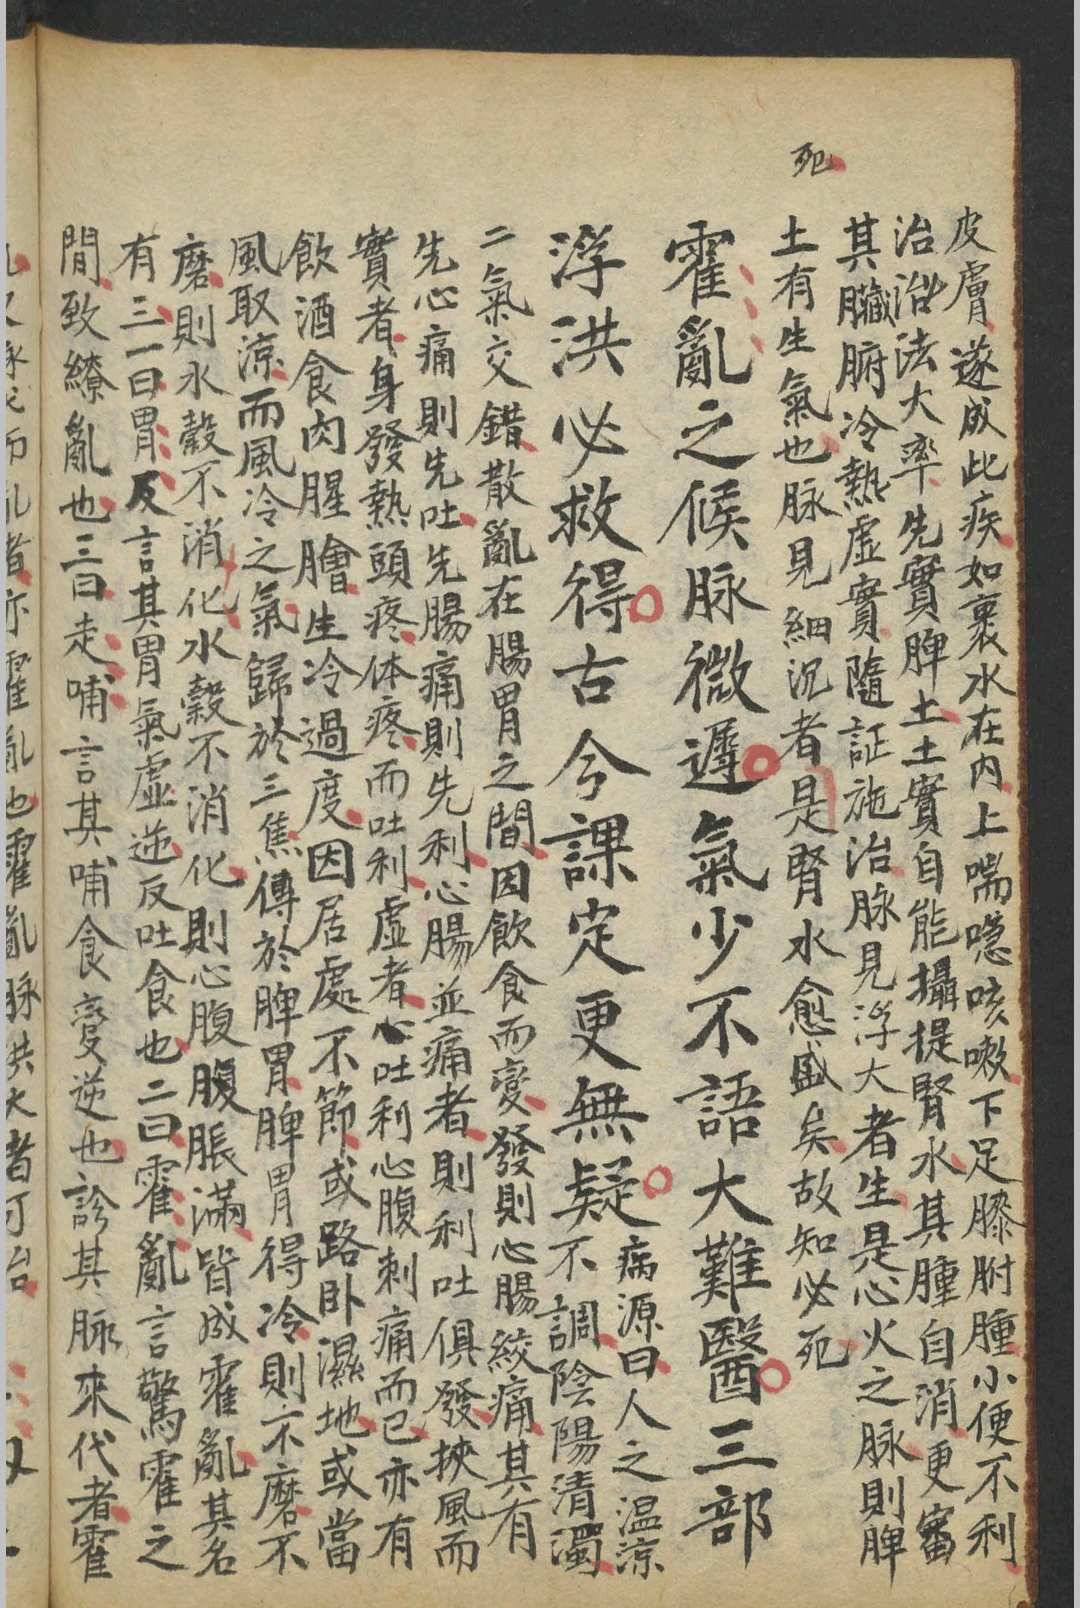 死
皮膚遂成此疾如裹水在內上喘㥯咳嗽下足膝胕腫小便不利
治治法大率先實脾土土實自能攝提腎水其腫自消更審
其臟腑冷熱虛實隨証施治脉見浮大者生是心火之脉則脾
土有生氣也脉見細沉者是腎水愈盛矣故知必死
霍亂之候脉微遲氣少不語大難醫三部
浮洪必救得古今課定更無疑病源曰人之温涼
不調陰陽清濁
二氣交錯散亂在腸胃之間因飲食而變發則心腸絞痛其有
先心痛則先吐先腸痛則先利心腸並痛者則利吐俱發挾風而
實者身發熱頭疼体疼而吐利虛者心吐利心腹刺痛而已亦有
飲酒食肉腥膾生冷過度因居處不節或路卧濕地或當
風取涼而風冷之氣歸於三焦傳於脾胃脾胃得冷則不磨不
磨則水穀不消化水穀不消化則心腹腹脹滿皆成霍亂其名
有三一曰胃反言其胃氣虛逆反吐食也二曰霍亂言驚霍之
間致繚亂也三曰走哺言其哺食變逆也診其脉來代者霍
而亂者亦霍亂也霍亂脉洪大者可治